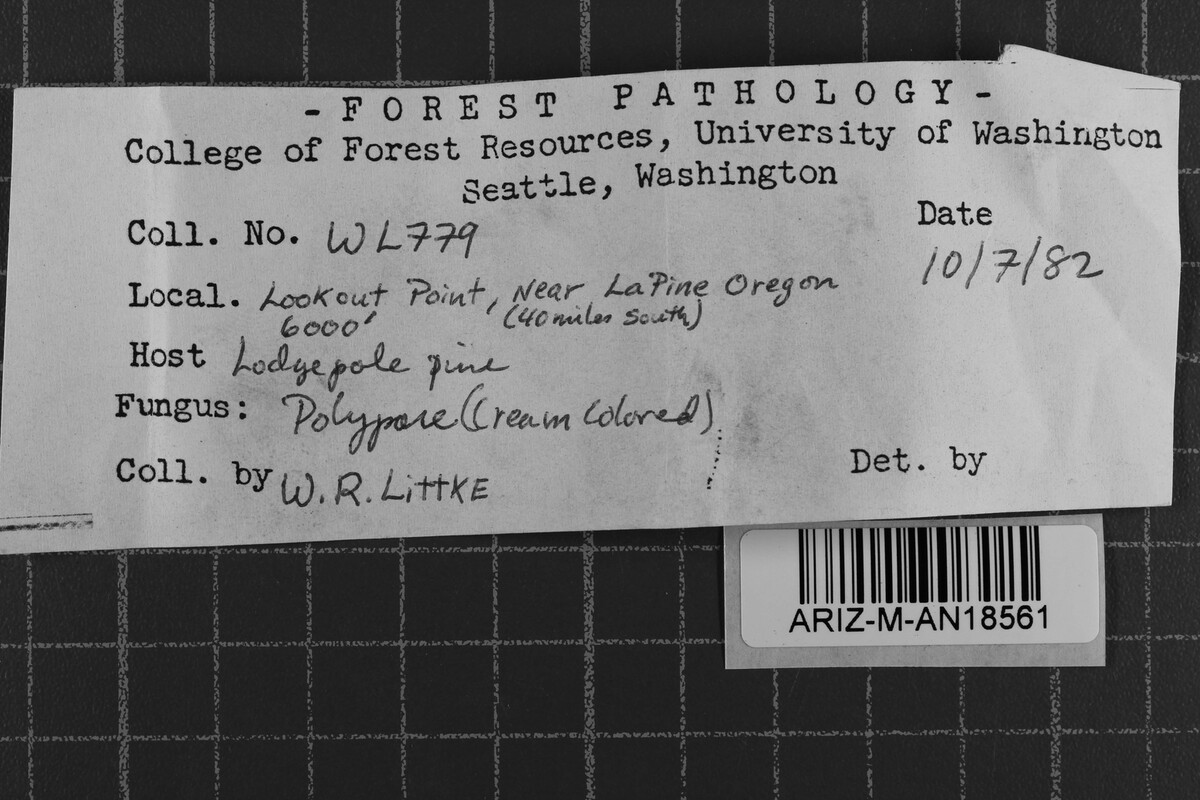 - F O R E S T   P A T H O L O G Y -
College of Forest Resources, University of Washington
Seattle, Washington
Coll. No. WL779
Date
10/7/82
Local. Lookout Point, Near LaPine Oregon
6000' (40 miles South)
Host Lodgepole pine
Fungus: Polypore (Cream Colored)
Coll. by W.R. LittKE
Det. by
ARIZ-M-AN18561